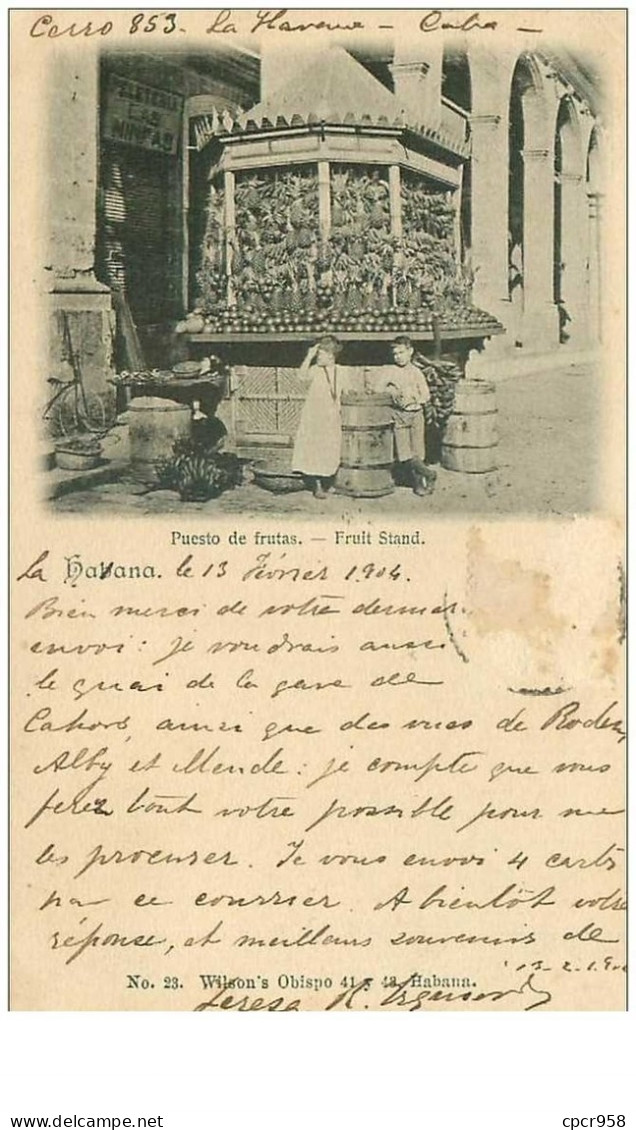 Cerro 853. La Havane - Cuba -
PELETERIA
LAS
NINFAS
Puesto de frutas. — Fruit Stand.
La Habana. le 13 Février 1904.
Bien merci de votre dernier
envoi: je voudrais aussi
le quai de la gare de
Cahors, ainsi que des vues de Rodez,
Alby et Mende: je compte que vous
ferez tout votre possible pour me
les procurer. Je vous envoi 4 cartes
par ce courrier. A bientôt votre
réponse, et meilleurs souvenirs de
13-2-190
No. 23. Wilson's Obispo 41 y 43, Habana.
Teresa R.
cpcr958